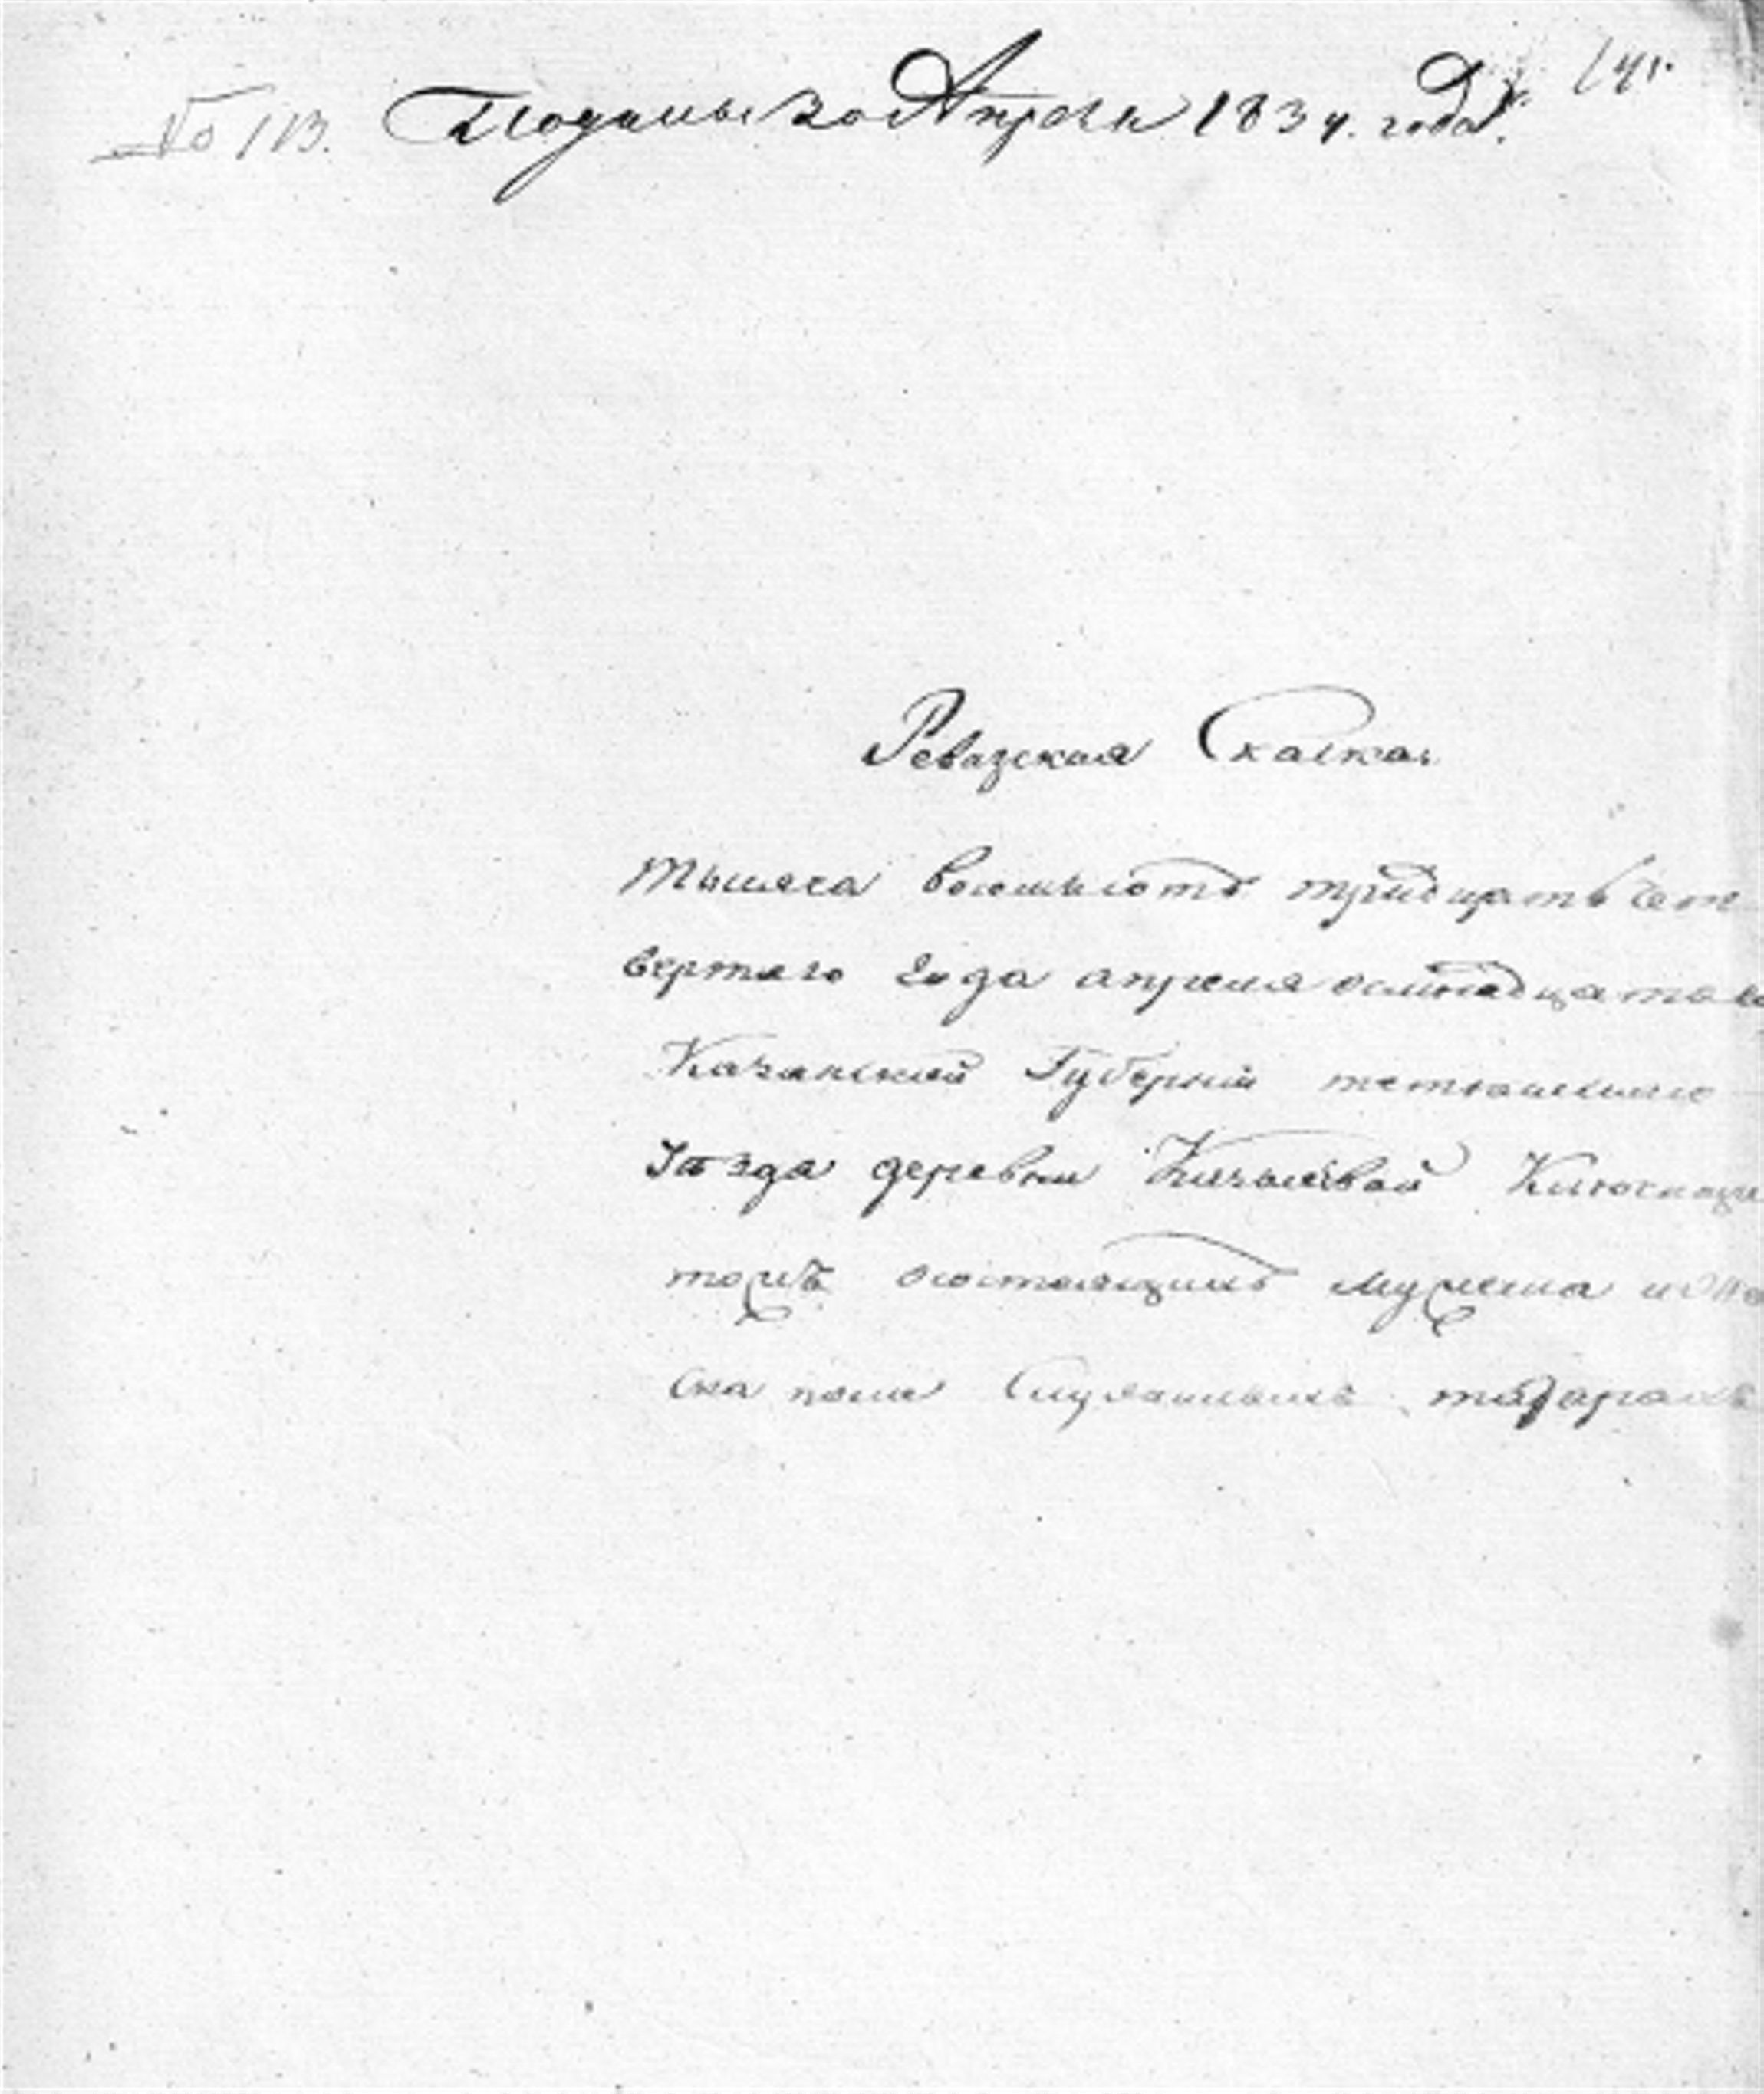 № 113. Поданы 20 Апреля 1834. года. 141.
Ревазская Скаска
тысяча восемьсотъ тридцать чет
вертаго года апреля
Казанской Губернии тетюшскаго
Уѣзда деревни
томъ состоящимъ мужеска и
ска пола Служилымъ татарамъ